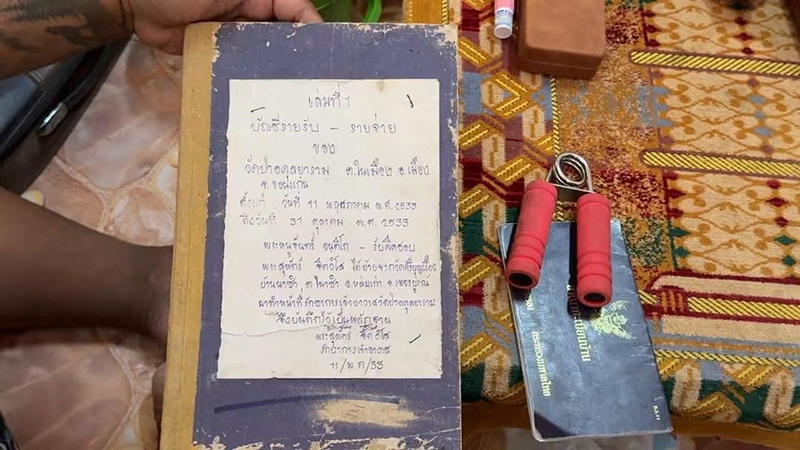 เล่มที่ 1
บัญชีรายรับ - รายจ่าย
ของ
วัดป่าอดุลยาราม ต.ในเมือง อ.เมือง
จ.ขอนแก่น
ตั้งแต่ วันที่ 11 พฤศภาคม พ.ศ.2533
ถึงวันที่ 31 ตุลาคม พ.ศ.2533
พระหนูจันทร์ - รับผิดชอบ
พระสุพัตร์ ได้ย้ายจากวัด
บ้านนาซำ ต.นาซำ อ.หล่มเก่า จ.เพชรบูรณ์
มาทำหน้าที่รักษาการเจ้าอาวาสวัดป่าอดุลยาราม
จึงบันทึกไว้เป็นหลักฐาน
พระสุพัตร์
รักษาการเจ้าอาวาส
11/พ.ค/33
ทะเบียนบ้าน
กระทรวงมหาดไทย